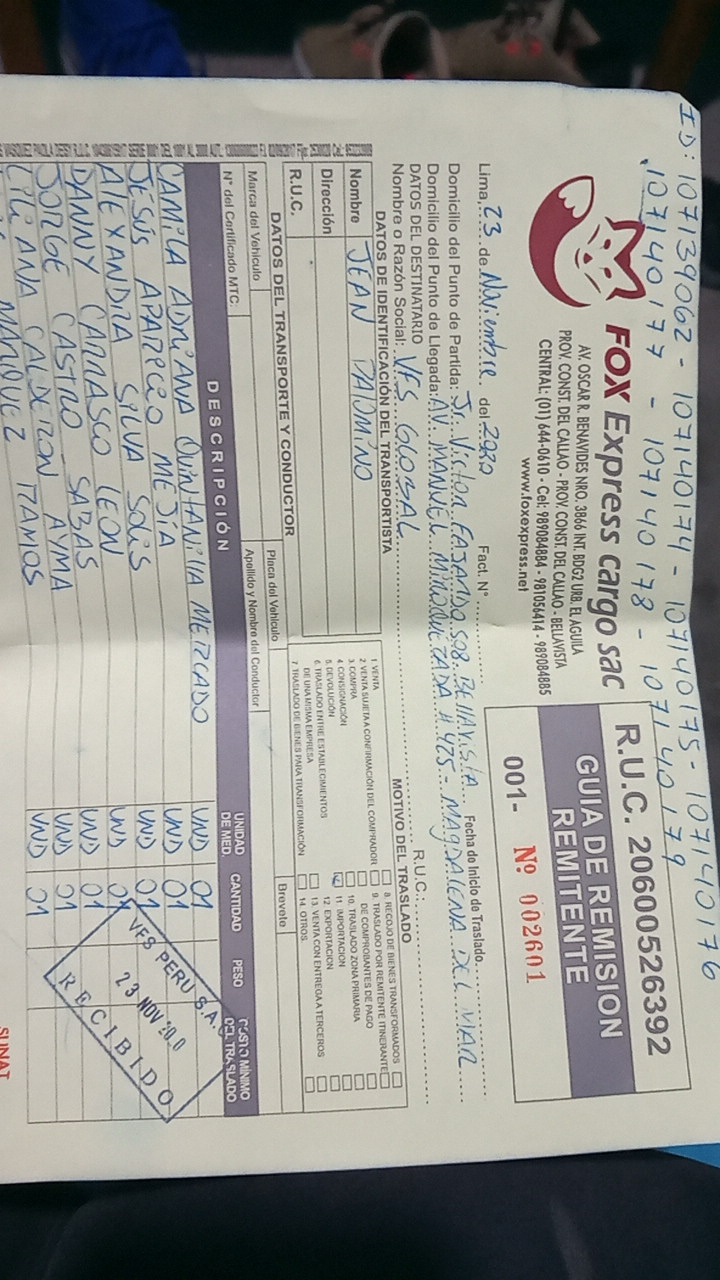 ID: 107139062 - 107140174 - 107140175 - 107140176
107140177 - 107140178 - 107140179
FOX Express cargo sac
AV. OSCAR R. BENAVIDES NRO. 3866 INT. BDG2 URB. EL AGUILA
PROV. CONST. DEL CALLAO - PROV. CONST. DEL CALLAO - BELLAVISTA
CENTRAL: (01) 644-0610 - Cel: 989084884 - 981056414 - 989084885
www.foxexpress.net
R.U.C. 20600526392
GUIA DE REMISION
REMITENTE
001- Nº 002601
Lima, 23 de Noviembre del 2020 Fact. N° Fecha de Inicio de Traslado
Domicilio del Punto de Partida: Jr. Victor FAJARDO 508. BELLAVISTA
Domicilio del Punto de Llegada: AV. MANUEL # 425 - MAGDALENA DEL MAR
DATOS DEL DESTINATARIO
Nombre o Razón Social: VFS GLOBAL R.U.C.:
DATOS DE IDENTIFICACIÓN DEL TRANSPORTISTA
Nombre JEAN PALOMINO
Dirección
R.U.C.
MOTIVO DEL TRASLADO
1. VENTA
2. VENTA SUJETA A CONFIRMACIÓN DEL COMPRADOR
3. COMPRA
4. CONSIGNACIÓN
5. DEVOLUCIÓN
6. TRASLADO ENTRE ESTABLECIMIENTOS
DE UNA MISMA EMPRESA
7. TRASLADO DE BIENES PARA TRANSFORMACIÓN
8. RECOJO DE BIENES TRANSFORMADOS
9. TRASLADO POR REMITENTE ITINERANTE
DE COMPROBANTES DE PAGO
10. TRASLADO ZONA PRIMARIA
11. IMPORTACION
12. EXPORTACION
13. VENTA CON ENTREGA A TERCEROS
14. OTROS
DATOS DEL TRANSPORTE Y CONDUCTOR
Marca del Vehículo Placa del Vehículo Brevete
N° del Certificado MTC. Apellido y Nombre del Conductor
DESCRIPCIÓN UNIDAD DE MED. CANTIDAD PESO COSTO MÍNIMO DEL TRASLADO
CAMILA ADRIANA QUINTANILLA MERCADO UND 01
JESÚS APARICIO MEJÍA UND 01
ALEXANDRA SILVA SOLIS UND 01
DANNY CARRASCO LEON UND 01
JORGE CASTRO SABAS UND 01
LILIANA CALDERON AYMA UND 01
MARQUEZ RAMOS UND 01
VFS PERU S.A.
23 NOV 2020
RECIBIDO
SUNAT